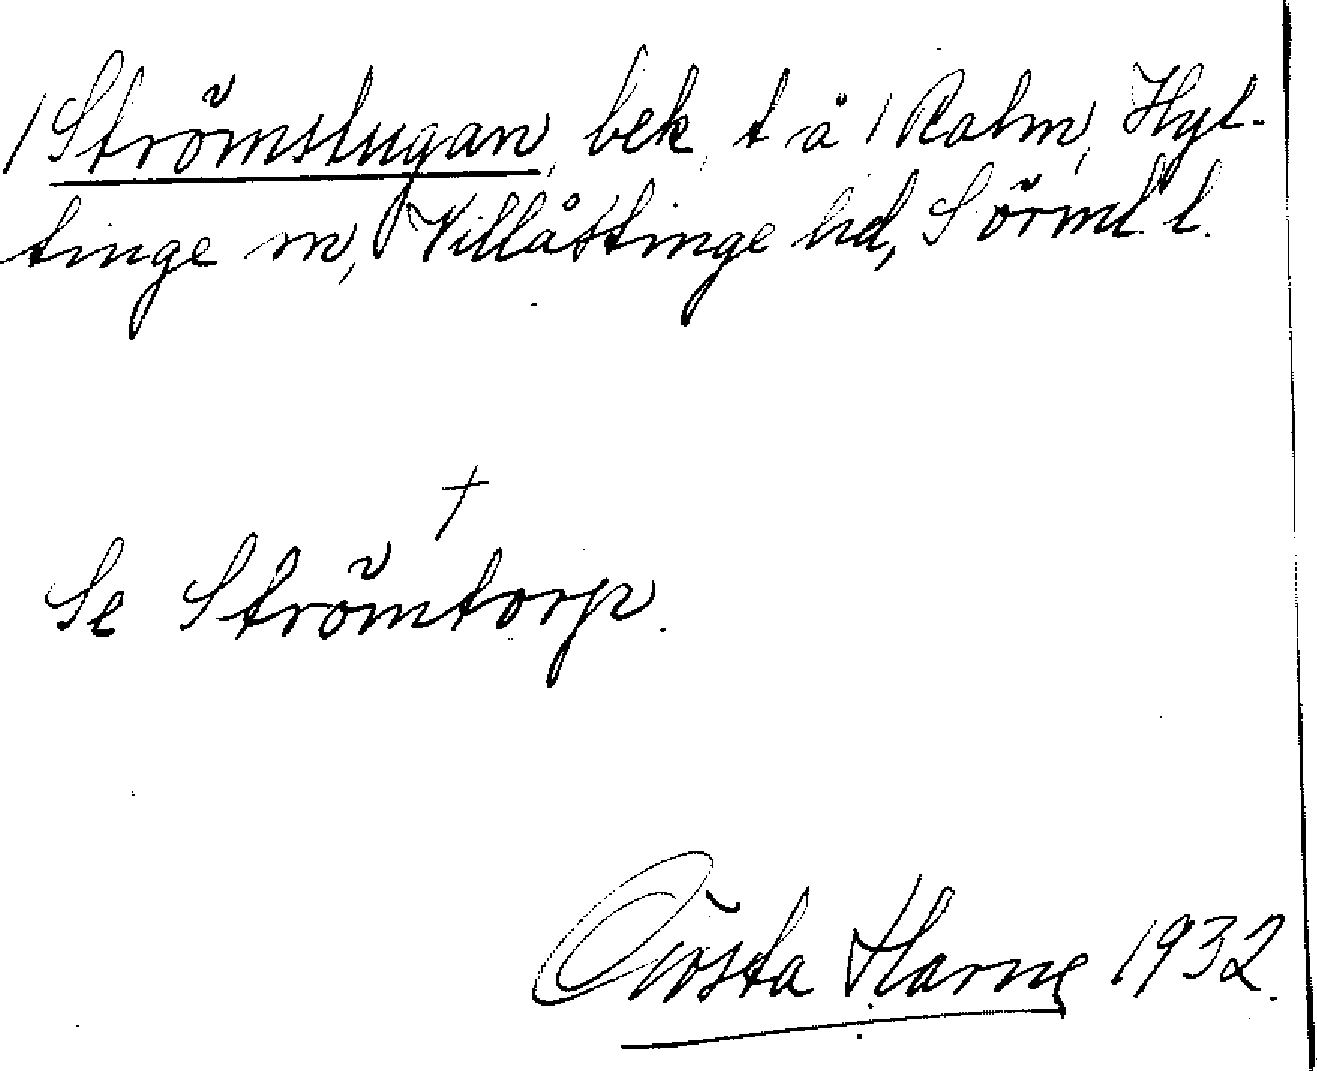 /Strömstugan, bek. t. å /Ralm, Hyl-
tinge sn, Villåttinge hd, Sörml. l.
†
Se Strömtorp.
Gösta Harne 1932.